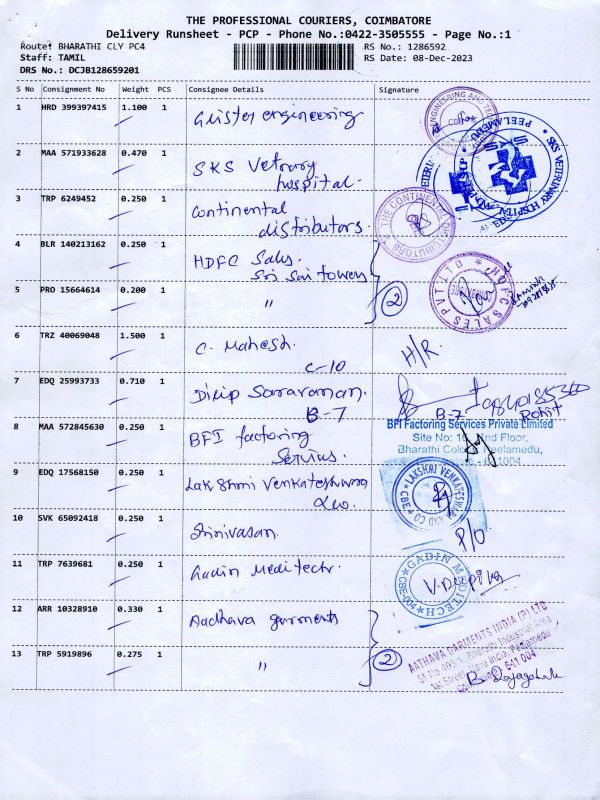 THE PROFESSIONAL COURIERS, COIMBATORE
Delivery Runsheet - PCP - Phone No.:0422-3505555 - Page No.:1
Route: BHARATHI CLY PC4 RS No.: 1286592
Staff: TAMIL RS Date: 08-Dec-2023
DRS No.: DCJB128659201
S No Consignment No Weight PCS Consignee Details Signature
1 HRD 399397415 1.100 1 engineering
2 MAA 571933628 0.470 1 SKS
hospital.
3 TRP 6249452 0.250 1 Continental
distributors.
4 BLR 140213162 0.250 1 HDFC Sales.
Sri Sai towers
5 PRO 15664614 0.200 1 " 2
6 TRZ 40069048 1.500 1 C. Mahesh. H/R.
C-10
7 EDQ 25993733 0.710 1 Dilip Saravanan.
B-7 B-7 Rohit
8 MAA 572845630 0.250 1 BFI factoring
BFI Factoring Services Private Limited
Floor,
Bharathi Peelamedu,
9 EDQ 17568150 0.250 1 Lakshmi Venkateshwara
LAKSHRI VENKATESWARA AND CO CBE
10 SVK 65092418 0.250 1 Srinivasan. P/O
11 TRP 7639681 0.250 1 Gadin Meditech.
GADIN MEDITECH CBE-004
12 ARR 10328910 0.330 1 Aadhava garments
AATHAVA GARMENTS INDIA (P) LTD
13 TRP 5919896 0.275 1 " 2
THE CONTINENTAL DISTRIBUTORS
HDFC SALES PVT LTD
SKS VETERINARY HOSPITAL
PEELAMEDU